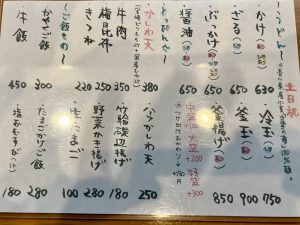 〜うどん〜
土日祝
かけ 630
ざる 650
ぶっかけ 650
醤油 650
冷玉 750
釜玉 900
釜揚げ 850
中盛 +100
大盛 +200
特盛 +300
+150円
〜とっぴんぐ〜
かしわ天 380
牛肉 350
梅昆布 250
きつね 220
かしわ天 250
竹輪磯辺揚げ 180
野菜かき揚げ 280
生たまご 100
〜ご飯もの〜
かやくご飯 300
牛飯 450
たまごかけご飯 280
塩むすび 180